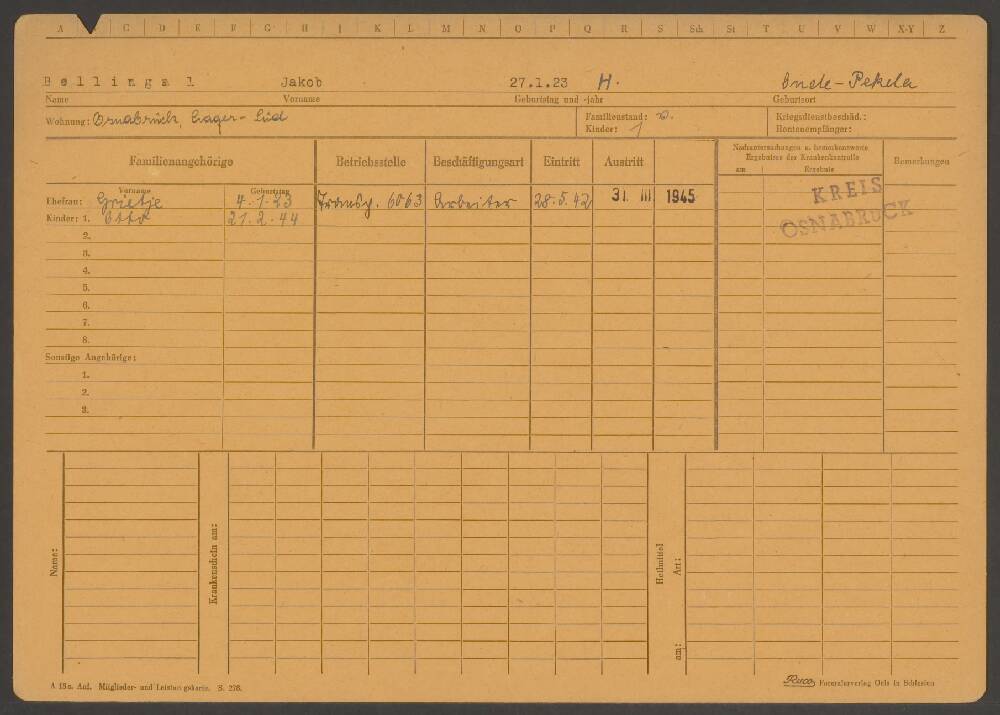 A C D E F G H I J K L M N O P Q R S Sch St T U V W X-Y Z
Bellinga 1 Jakob 27.1.23 H. Onde-Pekela
Name Vorname Geburtstag und -jahr Geburtsort
Wohnung: Osnabrück, Lager-Süd Familienstand: v. Kriegsdienstbeschäd.:
Kinder: 1 Rentenempfänger:
Familienangehörige Betriebsstelle Beschäftigungsart Eintritt Austritt Nachuntersuchungen u. bemerkenswerte Ergebnisse der Krankenkontrolle Bemerkungen
am Ergebnis
Vorname Geburtstag
Ehefrau: Grietje 4.1.23 Transp. 6063 Arbeiter 28.5.42 31 III 1945 KREIS
Kinder: 1. Otto 21.2.44 OSNABRÜCK
2.
3.
4.
5.
6.
7.
8.
Sonstige Angehörige:
1.
2.
3.
Name:
Krankenschein am:
Heilmittel
Art:
am:
A 18a. Aul. Mitglieder- und Leistungskarte. S. 276. Ruco Formularverlag Oels in Schlesien